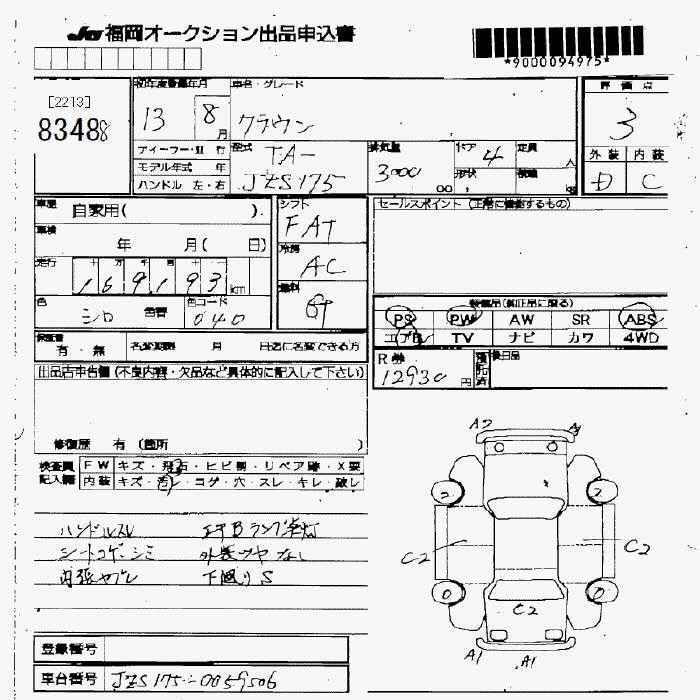 JU 福岡オークション出品申込書
*9000094975*
[2213]
83488
初年度登録年月
13 8月
車名・グレード
クラウン
評価点
3
外装 内装
D C
ディーラー・並行
モデル年式 年
ハンドル 左・右
型式
TA-
JZS175
排気量
3000
00,
ドア 4
形状
定員 人
積載 kg
車歴 自家用( ).
車検
年 月( 日)
走行 十 万 千 百 十
169193 km
色 シロ 色替
色コード 040
シフト
FAT
冷房
AC
燃料
セールスポイント (正常に機能するもの)
装備品(純正品に限る)
PS PW AW SR ABS
エアB TV ナビ カワ 4WD
R券
12930円
預託済
後日品
保証書 有・無
名変期限 月 日迄に名変できる方
出品店申告欄(不良内容・欠品など具体的に記入して下さい)
修復歴 有 (箇所 )
検査員記入欄
FW キズ・飛石・ヒビ割・リペア跡・X要
内装 キズ・汚レ・コゲ・穴・スレ・キレ・破レ
ハンドルスレ エアBランプ点灯
シートコゲ・シミ 外装ツヤなし
内張ヤブレ 下廻りS
A2 A
2 2
C2 C2
0 0
C2
A1 A1
登録番号
車台番号 JZS175-0059506